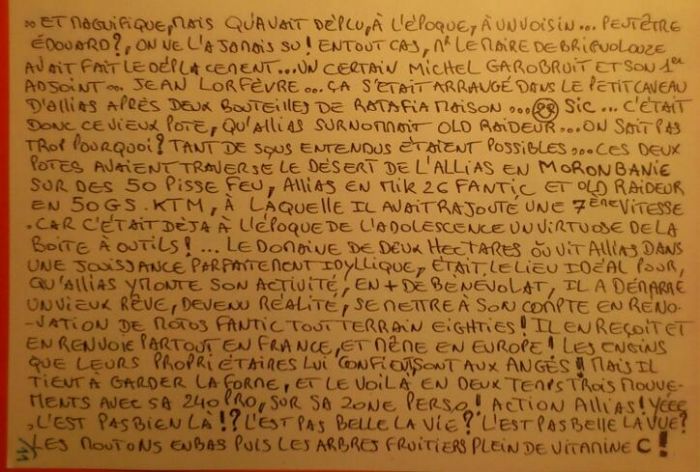 ∞ ET MAGNIFIQUE, MAIS QU'AVAIT DÉPLU, À L'ÉPOQUE, À UN VOISIN... PEUT ÊTRE
ÉDOUARD ?, ON NE L'A JAMAIS SU ! EN TOUT CAS, Mr LE MAIRE DE BRIGNOLOUZE
AVAIT FAIT LE DÉPLACEMENT... UN CERTAIN MICHEL GAROBRUIT ET SON 1er
ADJOINT... JEAN LORFÈVRE... ÇA S'ÉTAIT ARRANGÉ DANS LE PETIT CAVEAU
D'ALLIAS APRÈS DEUX BOUTEILLES DE RATAFIA MAISON... SIC... C'ÉTAIT
DONC CE VIEUX POTE, QU'ALLIAS SURNOMMAIT OLD RAIDEUR... ON SAIT PAS
TROP POURQUOI ? TANT DE SOUS ENTENDUS ÉTAIENT POSSIBLES... CES DEUX
POTES AVAIENT TRAVERSE LE DÉSERT DE L'ALLIAS EN MORONBANIE
SUR DES 50 PISSE FEU, ALLIAS EN MIK 2C FANTIC ET OLD RAIDEUR
EN 50 GS. KTM, À LAQUELLE IL AVAIT RAJOUTÉ UNE 7ème VITESSE
. CAR C'ÉTAIT DÉJA À L'ÉPOQUE DE L'ADOLESCENCE UN VIRTUOSE DE LA
BOÎTE À OUTILS !... LE DOMAINE DE DEUX HECTARES OÙ VIT ALLIAS DANS
UNE JOUISSANCE PARFAITEMENT IDYLLIQUE, ÉTAIT LE LIEU IDÉAL POUR,
QU'ALLIAS Y MONTE SON ACTIVITÉ, EN + DE BENEVOLAT, IL A DÉMARRÉ
UN VIEUX RÊVE, DEVENU RÉALITÉ, SE METTRE À SON COMPTE EN RENO-
-VATION DE MOTOS FANTIC TOUT TERRAIN EIGHTIES ! IL EN REÇOIT ET
EN RENVOIE PARTOUT EN FRANCE, ET MÊME EN EUROPE ! LES ENGINS
QUE LEURS PROPRIÉTAIRES LUI CONFIENT, SONT AUX ANGES !! MAIS IL
TIENT A GARDER LA FORME, ET LE VOILÀ EN DEUX TEMPS TROIS MOUVE-
MENTS AVEC SA 240 PRO, SUR SA ZONE PERSO ! ACTION ALLIAS ! YÉÉÉ
, L'EST PAS BIEN LÀ !? L'EST PAS BELLE LA VIE ? L'EST PAS BELLE LA VUE ?
LES MOUTONS EN BAS PUIS LES ARBRES FRUITIERS PLEIN DE VITAMINE C !